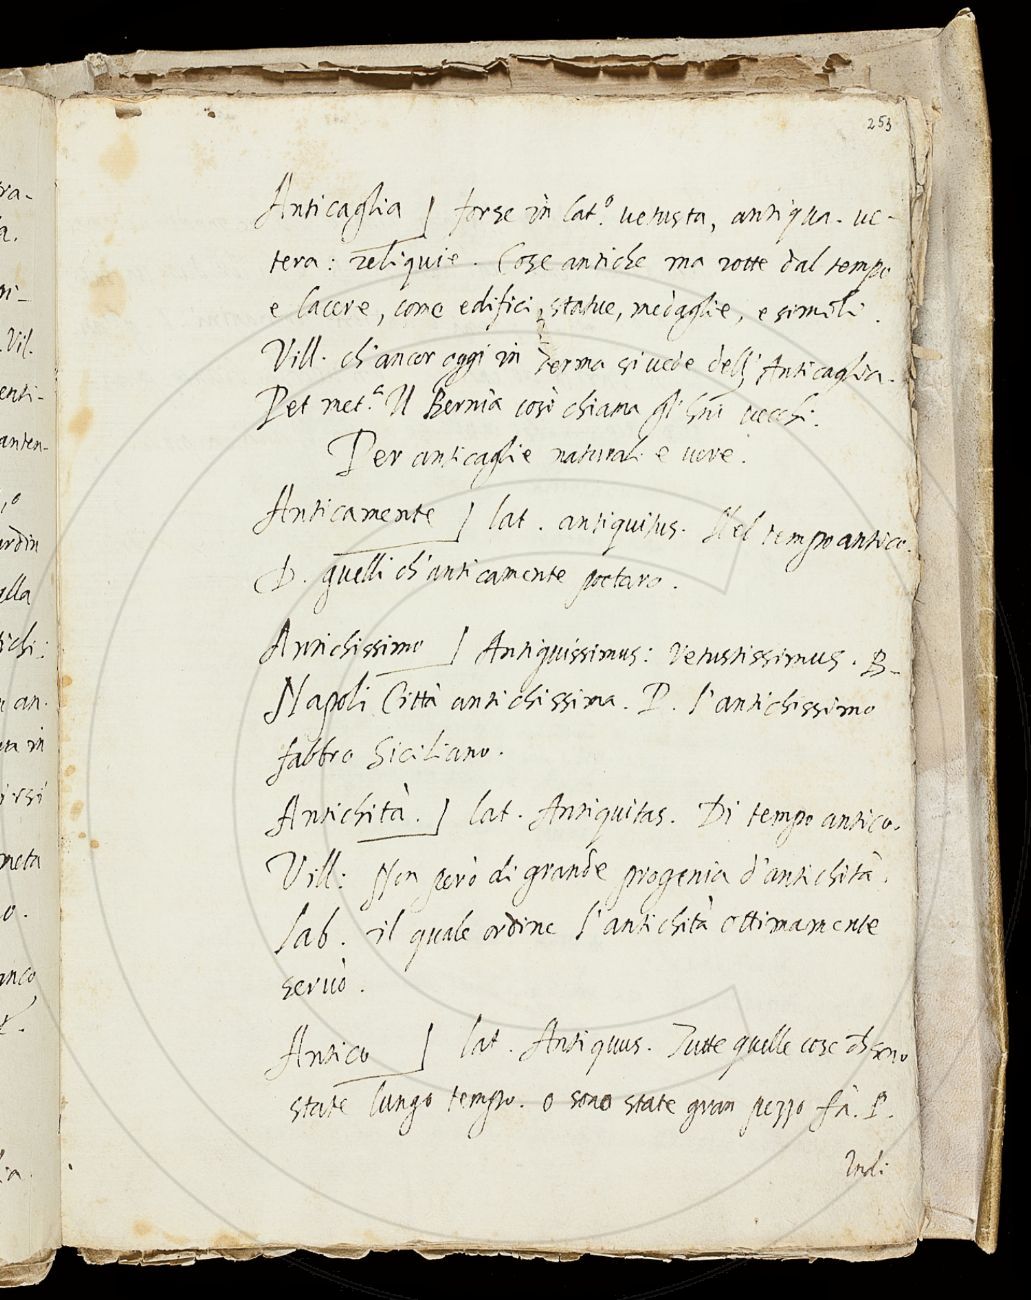 253
Anticaglia ] forse in lat.º vetusta, antiqua. ve-
tera: reliquie. Cose antiche ma rotte dal tempo
e lacere, come edifici, statue, medaglie, e simili.
Vill. ch'ancor oggi in terma si vede dell'Anticaglia.
Per met.ª Il Bernia così chiama gli vecchi.
Per anticaglie naturali e vere.
Anticamente ] lat. antiquitus. Nel tempo antico.
D. quelli ch'anticamente poetaro.
Antichissimo ] Antiquissimus: Vetustissimus. B.
Napoli Città antichissima. P. l'antichissimo
fabbro Siciliano.
Antichità. ] lat. Antiquitas. Di tempo antico.
Vill: Non però di grande progenia d'antichità.
Lab. il quale ordine l'antichità ottimamente
servò.
Antico ] lat. Antiquus. Tutte quelle cose ch sono
state lungo tempo. o sono state gran pezzo fà. P.
Indi
ra-
a.
ni-
Vil.
enti-
anten-
ardin
alla
tichi:
an.
ta in
irsi
meta
o.
anco
ia.